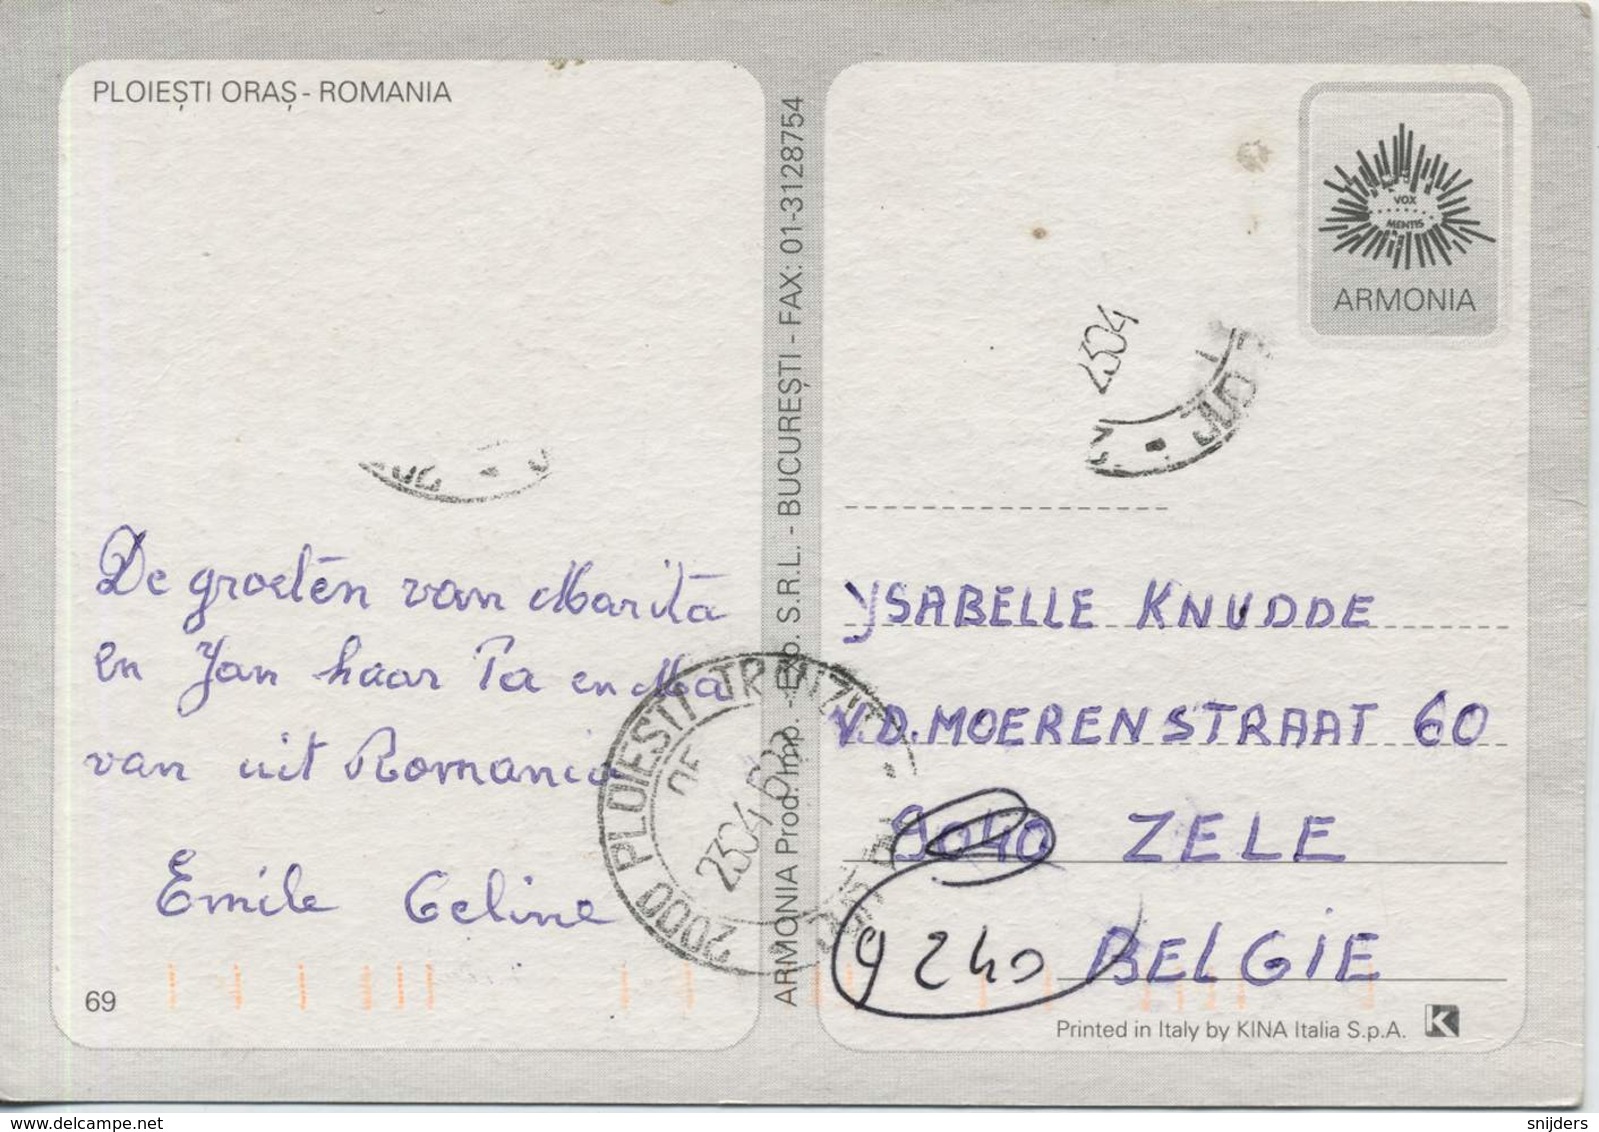 PLOIEȘTI ORAȘ - ROMANIA
De groeten van Marita
en Jan haar Pa en Ma
van uit Romania
Emile Celine
69
ARMONIA Prod. Imp. - Exp. S.R.L. - BUCUREȘTI - FAX: 01-3128754
2000 PLOIESTI TRANZIT
2304
VOX
MENTIS
ARMONIA
2304
JUD
YSABELLE KNUDDE
V.D. MOERENSTRAAT 60
9040 ZELE
9240 BELGIE
Printed in Italy by KINA Italia S.p.A. K
delcampe.net
snijders